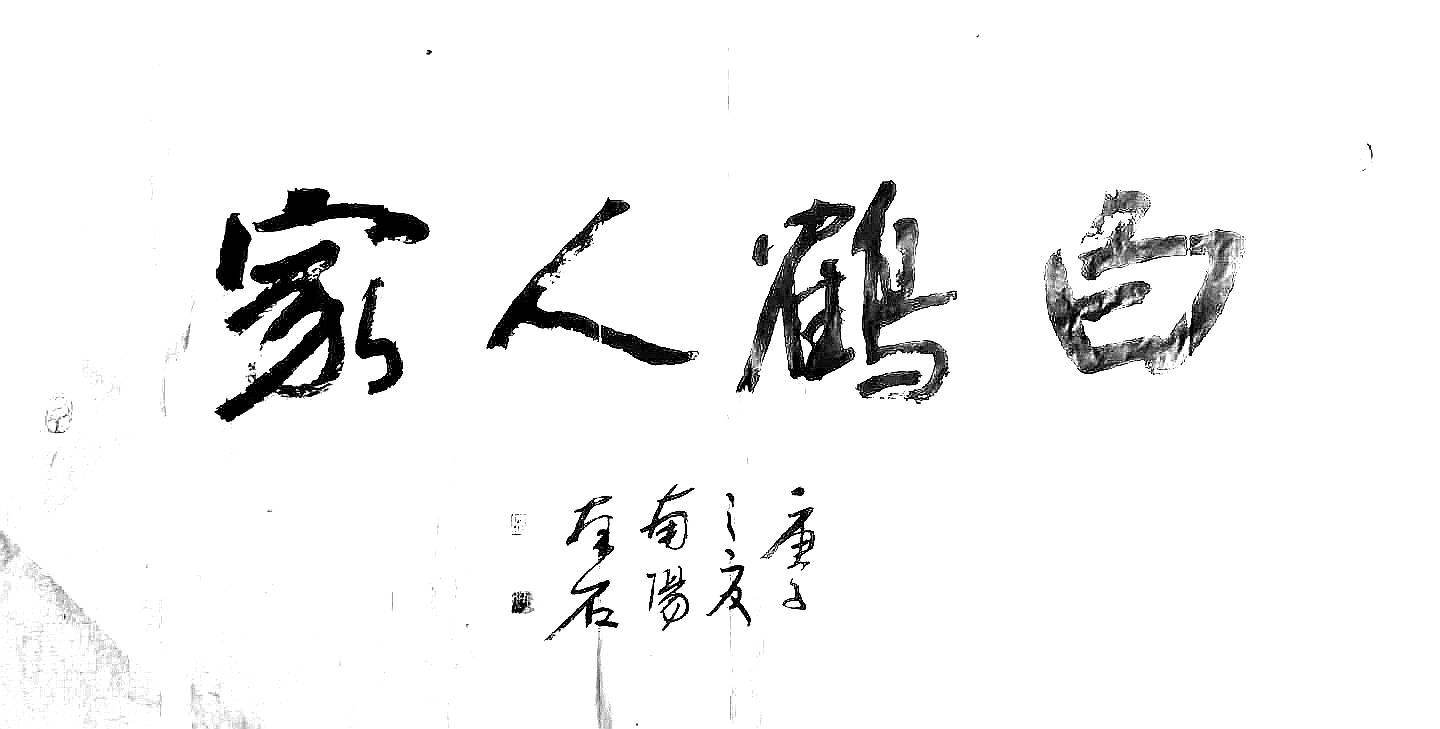 白鶴人家
庚子
之夏
南陽
石